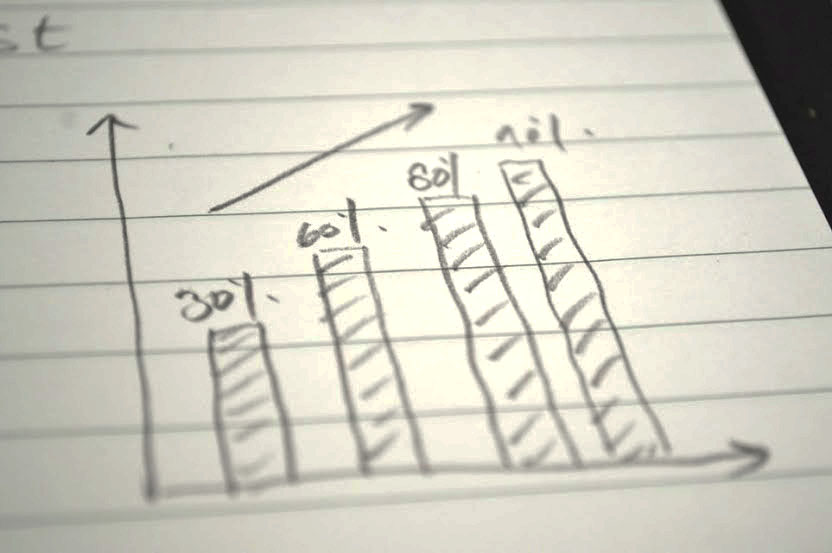 st
30%.
60%.
80%
90%.